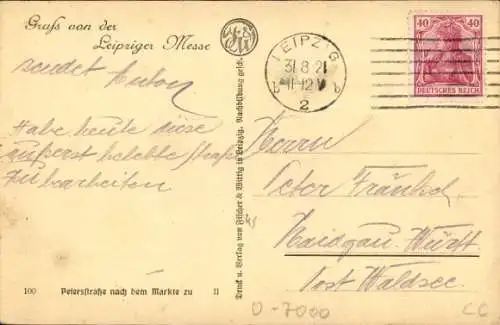 Gruß von der
Leipziger Messe
sendet Anton
Habe heute diese
äußerst belebte Straße
zu bearbeiten
100 Petersstraße nach dem Markte zu II
Druck u. Verlag von Fischer & Wittig in Leipzig. Nachbildung gesch.
LEIPZIG
31.8.21
11-12V
b b
2
40 40
DEUTSCHES REICH
Herrn
Peter Fränkel
Haidgau. Württ
Post Waldsee.
O-7000
CC